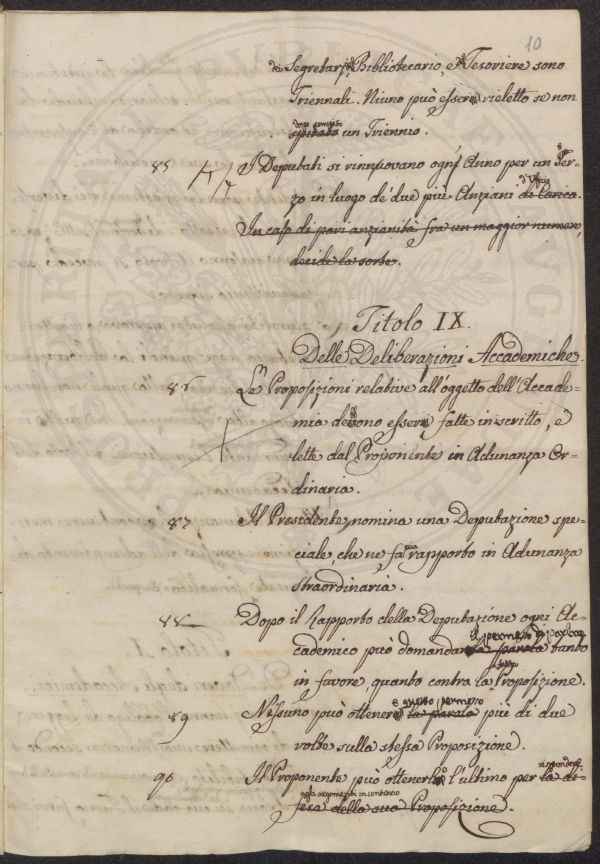 10
Segretarj, Bibliotecario, e Tesoriere sono
Triennali. Niuno può essere rieletto se non
dopo compito
spirato un Triennio.
85 I Deputati si rinnuovano ogni Anno per un Ter=
d'Ufizio
zo in luogo de' due più Anziani di Carica.
In caso di pari anzianità fra un maggior numero,
decide la sorte.
Titolo IX.
Delle Deliberazioni Accademiche.
86 Le Proposizioni relative all'oggetto dell'Accade=
mia devono essere fatte in iscritto, e
lette dal Proponente in Adunanza Or=
dinaria.
87 Il Presidente nomina una Deputazione spe=
ciale, che ne fa rapporto in Adunanza
straordinaria.
88 Dopo il Rapporto della Deputazione ogni Ac=
il permesso di parlare
cademico può domandare la parola tanto
in favore, quanto contra la Proposizione.
89 Nessuno può ottenere la parola più di due
questo permesso
volte sulla stessa Proposizione.
90 Il Proponente può ottenerla l'ultimo per la di=
rispondere
agli argomenti in contrario
fesa della sua Proposizione.